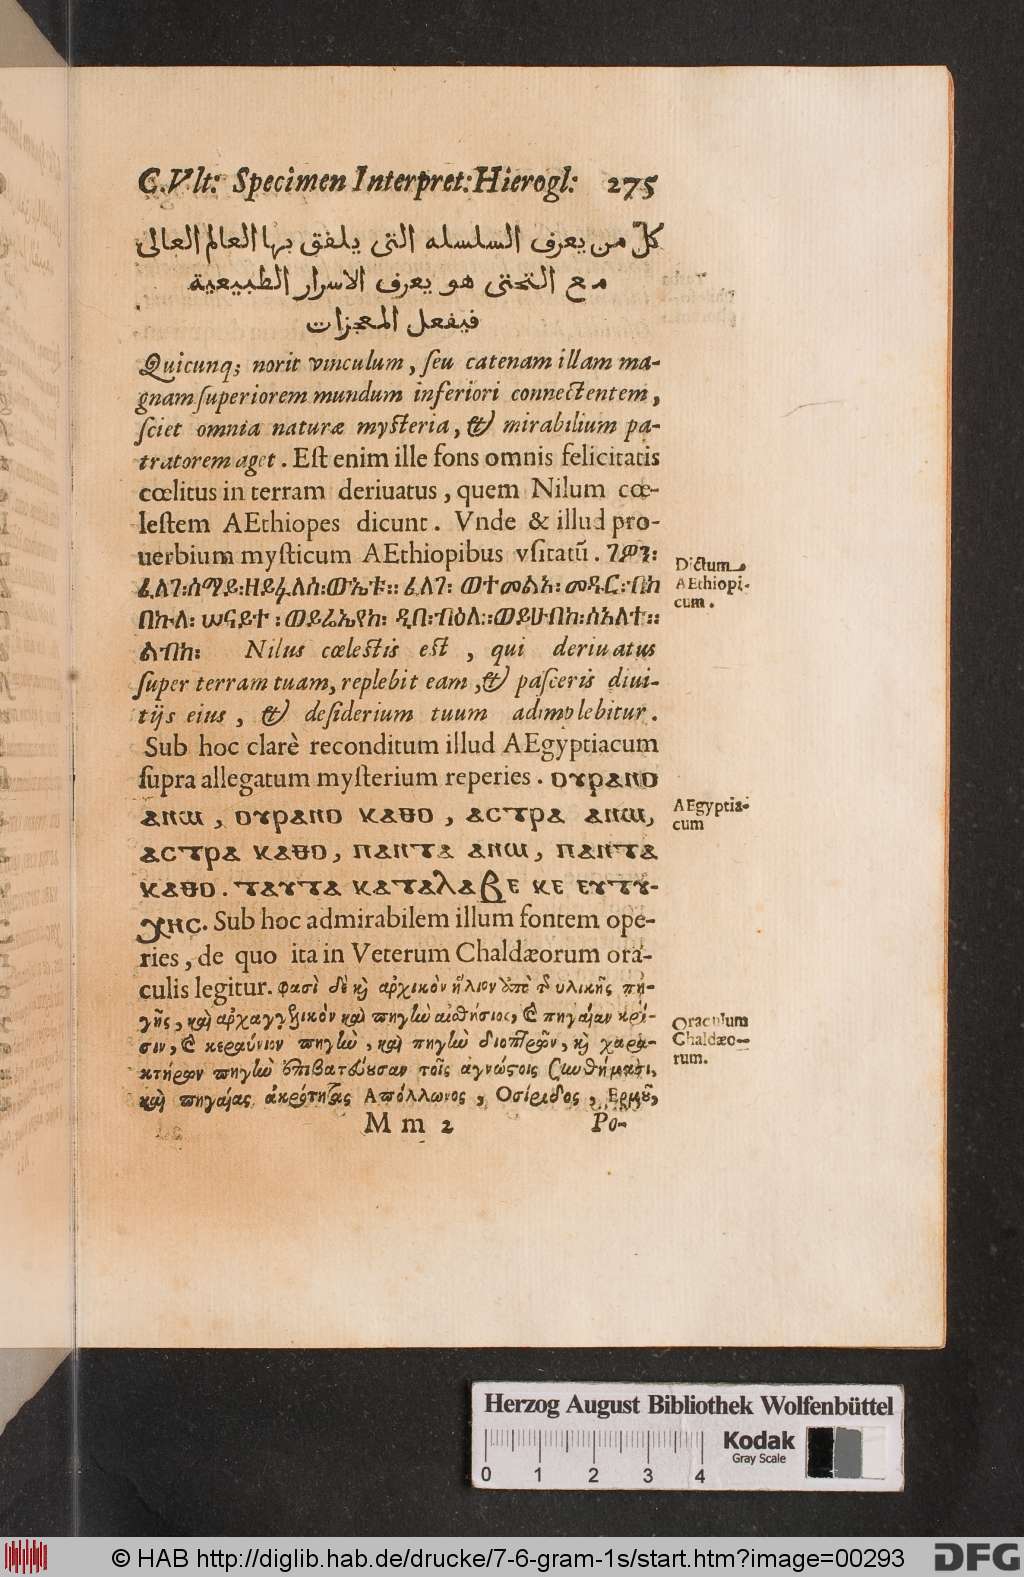 C. Vlt: Specimen Interpret: Hierogl: 275
كلّ من يعرف السلسله التى يلفق بها العالم العالى
مع التحتى هو يعرف الاسرار الطبيعية
فيفعل المعجزات
Quicunq; norit vinculum, ſeu catenam illam ma-
gnam ſuperiorem mundum inferiori connectentem,
ſciet omnia naturæ myſteria, & mirabilium pa-
tratorem aget. Eſt enim ille fons omnis felicitatis
cœlitus in terram deriuatus, quem Nilum cœ-
leſtem AEthiopes dicunt. Vnde & illud pro-
uerbium myſticum AEthiopibus vſitatū.
Dictum
AEthiopi-
cum.
Nilus cœleſtis eſt, qui deriuatus
ſuper terram tuam, replebit eam, & paſceris diui-
tijs eius, & deſiderium tuum adimplebitur.
Sub hoc clarè reconditum illud AEgyptiacum
ſupra allegatum myſterium reperies. ⲟⲩⲣⲁⲛⲟ
ⲁⲛⲱ, ⲟⲩⲣⲁⲛⲟ ⲕⲁⲑⲟ, ⲁⲥⲧⲣⲁ ⲁⲛⲱ,
ⲁⲥⲧⲣⲁ ⲕⲁⲑⲟ, ⲡⲁⲛⲧⲁ ⲁⲛⲱ, ⲡⲁⲛⲧⲁ
ⲕⲁⲑⲟ. ⲧⲁⲩⲧⲁ ⲕⲁⲧⲁⲗⲁⲃⲉ ⲕⲉ ⲉⲩⲧⲩ-
ⲭⲏⲥ. Sub hoc admirabilem illum fontem ope-
AEgyptia-
cum
ries, de quo ita in Veterum Chaldæorum ora-
culis legitur. φασὶ δὲ καὶ ἀρχικὸν ἥλιον ὑλικῆς πη-
γῆς, καὶ ἀρχαγγελικὸν καὶ πηγὴν αἰσθήσιος, καὶ πηγαίαν κρί-
σιν, καὶ κεραύνιον πηγὴν, καὶ πηγὴν διοπτρῶν, καὶ χαρα-
κτήρων πηγὴν ἐπιβατεύουσαν τοῖς ἀγνώστοις συνθήμασι,
καὶ πηγαίας ἀκρότητας Ἀπόλλωνος, Ὀσίριδος, Ἑρμοῦ,
Oraculum
Chaldæo-
rum.
M m 2 Po-
Herzog August Bibliothek Wolfenbüttel
Kodak
Gray Scale
0 1 2 3 4
© HAB http://diglib.hab.de/drucke/7-6-gram-1s/start.htm?image=00293
DFG